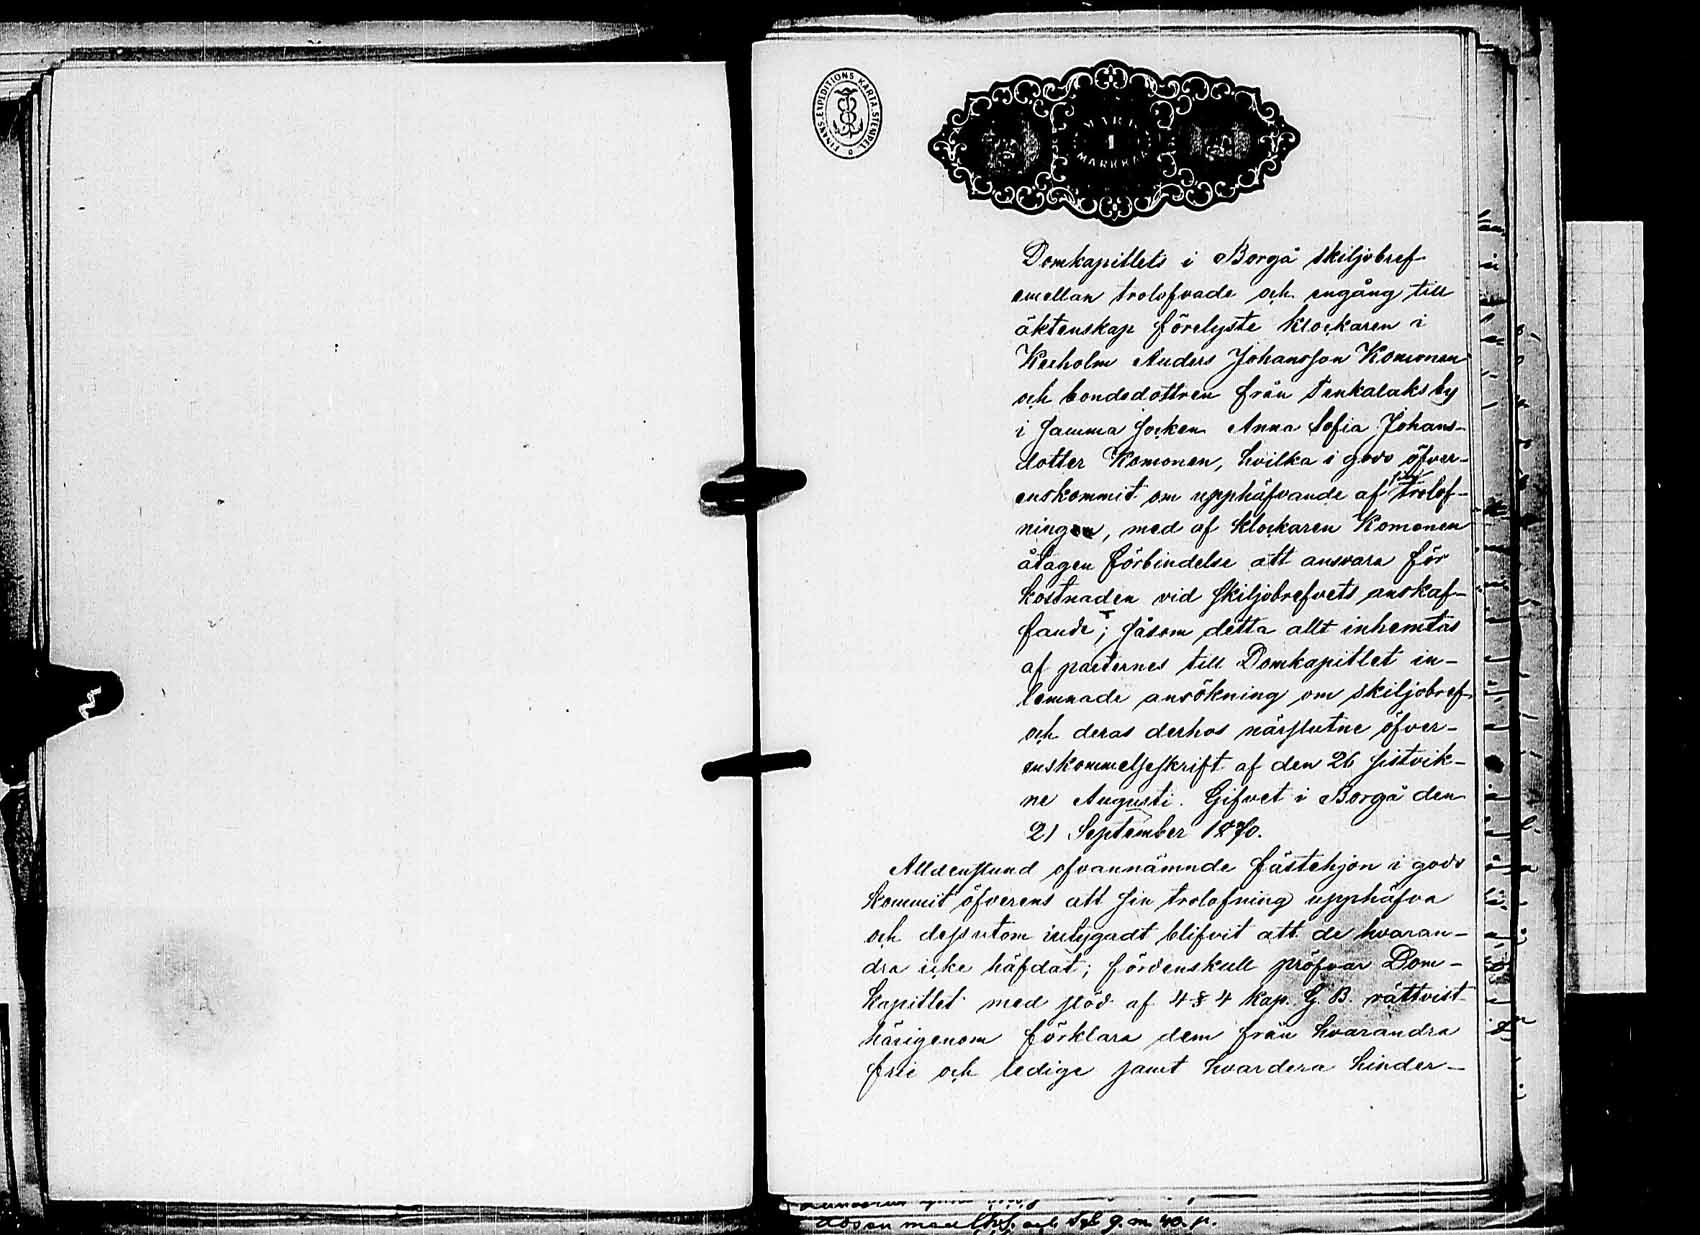 FINANS-EXPEDITIONS KARTA. STEMPEL
MARK
1
MARKKA
Domkapitlets i Borgå skiljobref
emellan trolofvade och engång till
äktenskap förelyste klockaren i
Kexholm Anders Johansson Komonen
och bondedottren från Tenkalaks by
i samma socken Anna Sofia Johans-
dotter Komonen, hvilka i godo öfver-
enskommit om upphäfvande af trolof-
ningen, med af klockaren Komonen
åtagen förbindelse att ansvara för
kostnaden vid skiljobrefvets anskaf-
fande; såsom detta allt inhemtas
af parternes till Domkapitlet in-
lemnade ansökning om skiljobref
och deras derhos närslutne öfver-
enskommelseskrift af den 26 sistvik-
ne Augusti. Gifvet i Borgå den
21 September 1870.
Alldenstund ofvannämnde fästehjon i godo
kommit öfverens att sin trolofning upphäfva
och dessutom intygadt blifvit att de hvaran-
dra icke häfdat; fördenskull pröfvar Dom-
kapitlet med stöd af 4 § 4 Kap. G. B. rättvist
härigenom förklara dem från hvarandra
frie och ledige samt hvardera hinder-